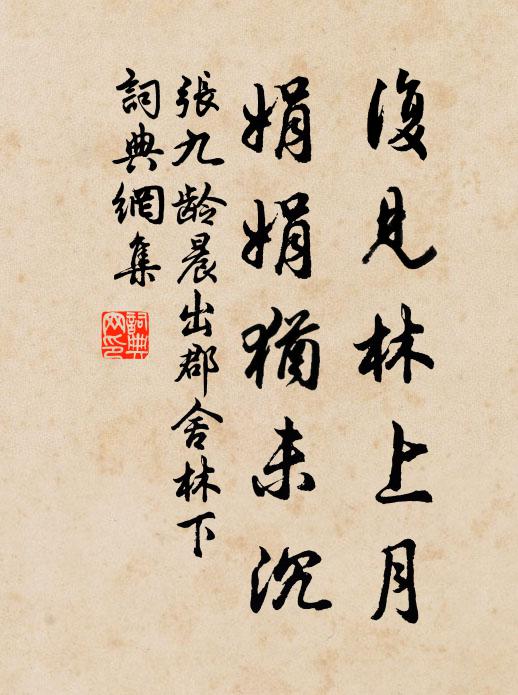 復見林上月
娟娟猶未沉
張九齡晨出郡舍林下
詞典網集
詞典
网印